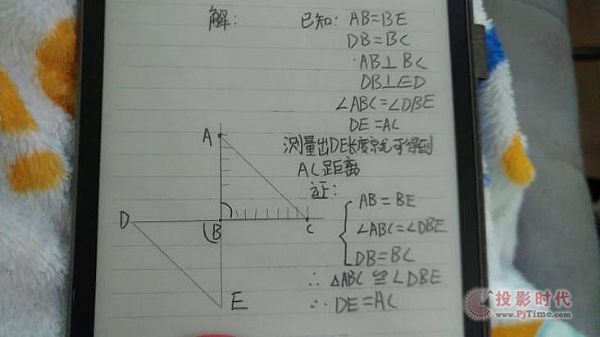 解: 已知: AB=BE
DB=BC
AB⊥BC
DB⊥ED
∠ABC=∠DBE
DE=AC
测量出DE长度就可得到
AC距离
证:
AB=BE
∠ABC=∠DBE
DB=BC
∴ △ABC≌∠DBE
∴ DE=AC
A
D
B
C
E
投影时代
www.PjTime.com